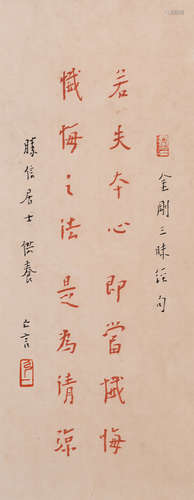 金剛三昧經句
若失本心即當懺悔
懺悔之法是為清涼
勝信居士供養
亡言